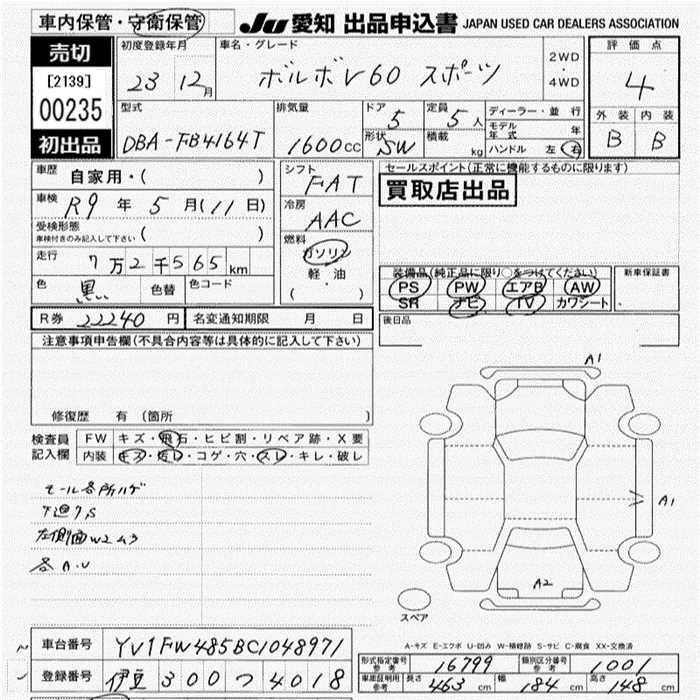 車内保管・守衛保管
JU 愛知 出品申込書 JAPAN USED CAR DEALERS ASSOCIATION
売切
[2139]
00235
初出品
初度登録年月
23 12月
車名・グレード
ボルボV60 スポーツ
2WD
・
4WD
評価点
4
外装 内装
B B
型式
DBA-FB4164T
排気量
1600cc
ドア 5
定員 5人
形状 SW
積載 kg
ディーラー・並行
モデル年式 年
ハンドル 左 右
車歴 自家用・( )
車検 R9年5月(11日)
受検形態
車検付きのみ記入して下さい ( )
走行 7万2千565km
色 黒 色替 色コード
シフト
FAT
冷房
AAC
燃料
ガソリン
軽・油
( ・ )
セールスポイント(正常に機能するものに限ります)
買取店出品
装備品(純正品に限り○をつけてください)
PS PW エアB AW
SR ナビ TV カワシート
新車保証書
後日品
R券 22240円 名変通知期限 月 日
注意事項申告欄(不具合内容等は具体的に記入して下さい)
修復歴 有 (箇所 )
検査員記入欄
FW キズ・飛石・ヒビ割・リペア跡・X要
内装 キズ・汚レ・コゲ・穴・スレ・キレ・破レ
モール各所ハゲ
下廻りS
左側面W2ム3
各A.U
A1
A1
A2
スペア
A-キズ E-エクボ U-凹み W-補修跡 S-サビ C-腐食 XX-交換済
車台番号 YV1FW485BC1048971
登録番号 伊豆 300 つ 4018
型式指定番号 参考 16799
類別区分番号 参考 1001
車庫証明用 参考 長さ 463cm 幅 184cm 高さ 148cm